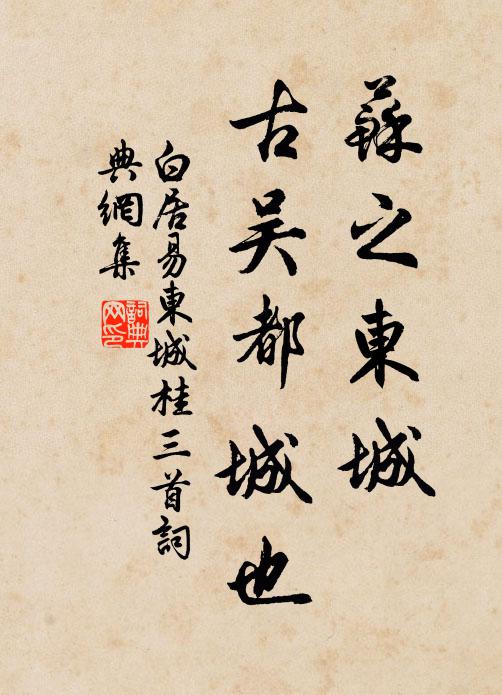 蘇之東城
古吴都城也
白居易東城桂三首詞
典網集
詞典网印